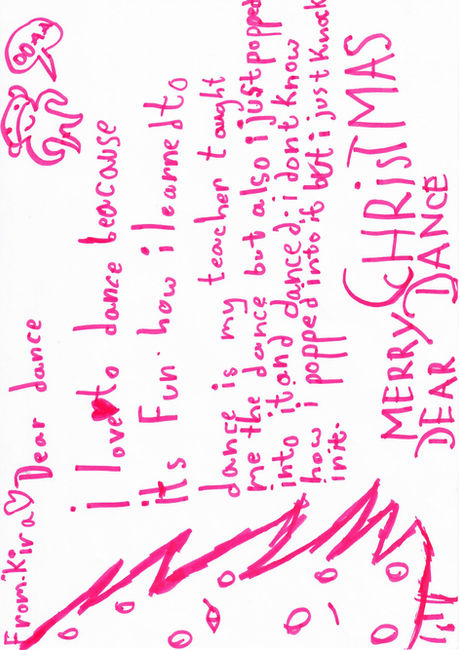 From:Kira♡
Dear dance
i love♥to dance beacause
it's Fun. how i learned to
dance is my teacher taught
me the dance but also i just popped
into it and danced. i dont know
how i popped into it but i just knock
in it.
MERRY CHRiSTMAS
DEAR DANCE